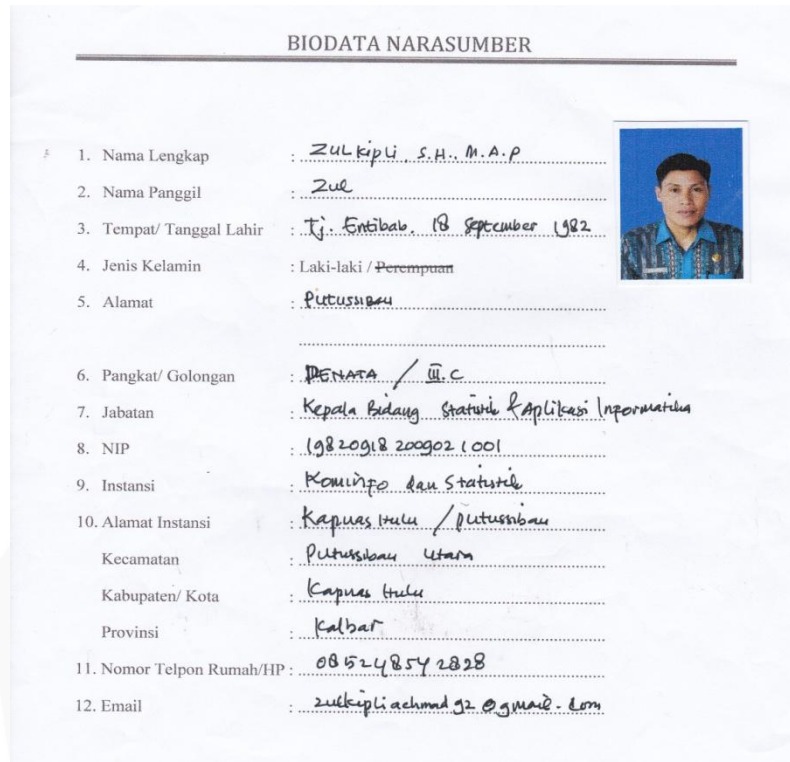 BIODATA NARASUMBER
1. Nama Lengkap : Zulkipli, S.H., M.A.P
2. Nama Panggil : Zul
3. Tempat/ Tanggal Lahir : Tj. Entibab, 18 September 1982
4. Jenis Kelamin : Laki-laki / Perempuan
5. Alamat : Putussibau
6. Pangkat/ Golongan : PENATA / III.C
7. Jabatan : Kepala Bidang Statistik & Aplikasi Inpormatika
8. NIP : 19820918 200902 1 001
9. Instansi : Kominfo dan Statistik
10. Alamat Instansi : Kapuas Hulu / Putussibau
Kecamatan : Putussibau Utara
Kabupaten/ Kota : Kapuas Hulu
Provinsi : Kalbar
11. Nomor Telpon Rumah/HP : 085248542828
12. Email : zulkipliachmad92@gmail.com